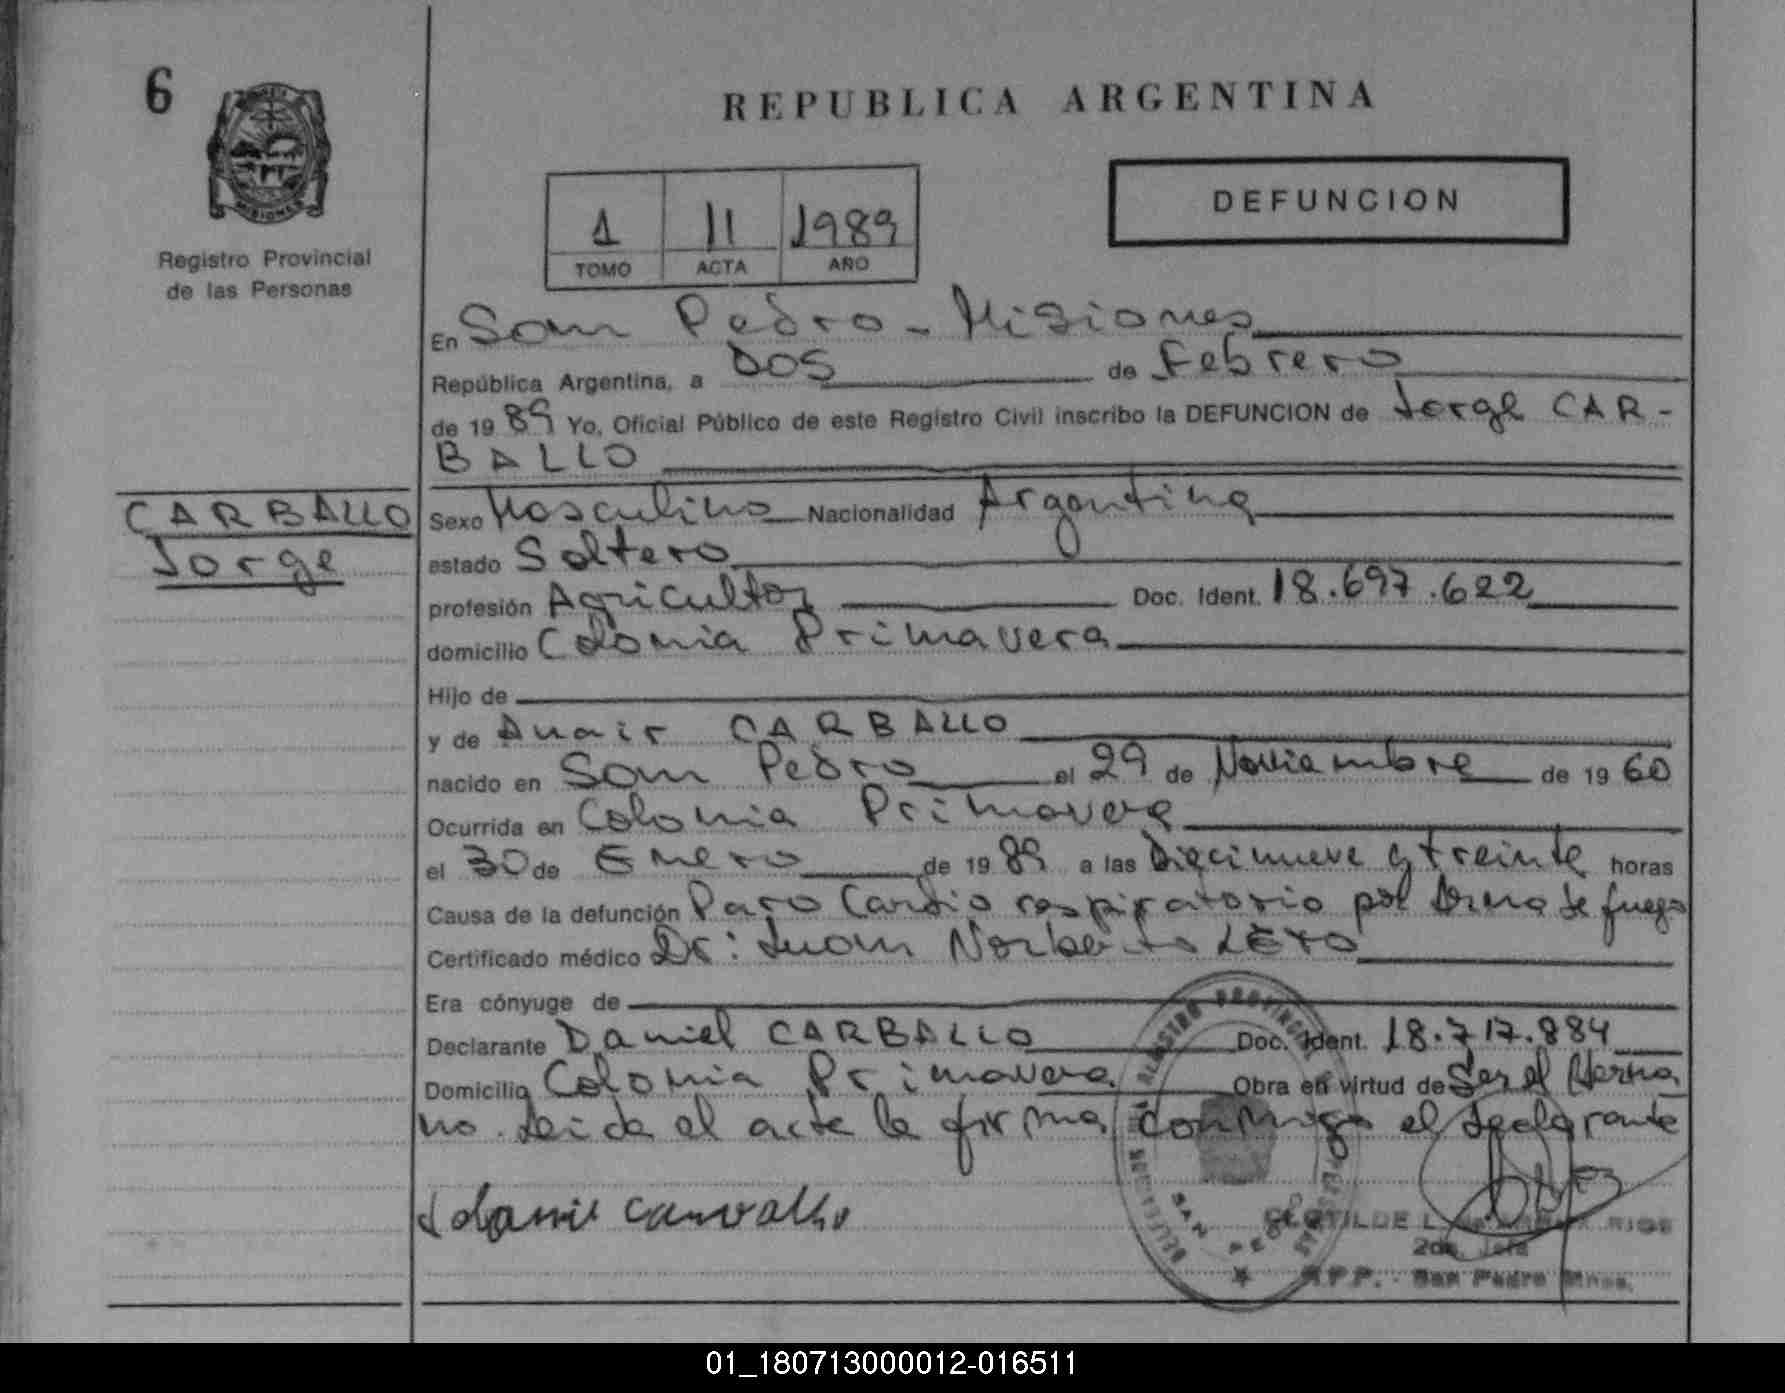 6
REPUBLICA ARGENTINA
MISIONES
Registro Provincial
de las Personas
1 11 1989
TOMO ACTA AÑO
DEFUNCION
En San Pedro - Misiones
República Argentina, a DOS de Febrero
de 1989 Yo, Oficial Público de este Registro Civil inscribo la DEFUNCION de Jorge CAR-
BALLO
CARBALLO
Jorge
Sexo Masculino Nacionalidad Argentina
estado Soltero
profesión Agricultor Doc. Ident. 18.697.622
domicilio Colonia Primavera
Hijo de
y de Anair CARBALLO
nacido en San Pedro el 29 de Noviembre de 1960
Ocurrida en Colonia Primavera
el 30 de Enero de 1989 a las Diecinueve y treinta horas
Causa de la defunción Paro Cardio respiratorio por Arma de fuego
Certificado médico Dr: Juan Norberto
Era cónyuge de
Declarante Daniel CARBALLO Doc. Ident. 18.717.884
Domicilio Colonia Primavera Obra en virtud de Ser el Herma
no. Leida el acta la firma conmigo el declarante
Carvallo
REGISTRO PROVINCIAL DE LAS PERSONAS
SAN PEDRO
CLOTILDE L. RIOS
2da. Jefa
R.P.P. - San Pedro Mnes.
01_180713000012-016511